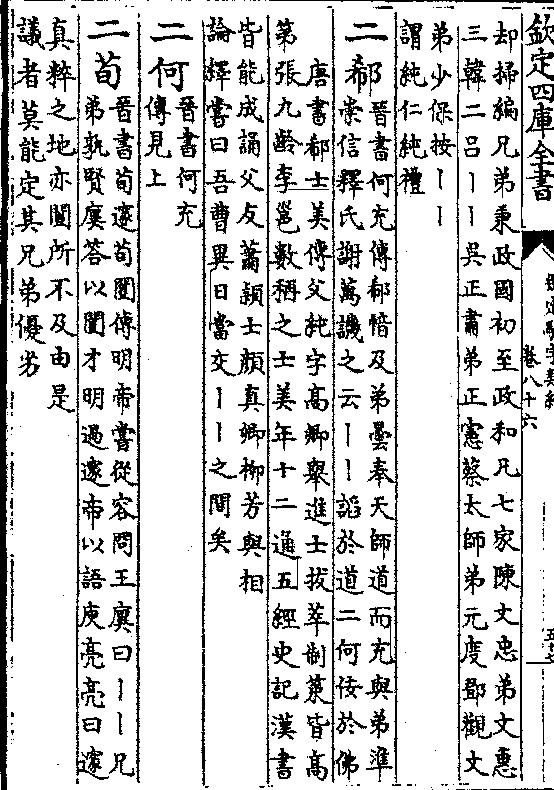 欽定四庫全書
卷八十六
却掃編兄弟秉政國初至政和凡七家陳文忠弟文惠
三韓二呂丨丨吳正肅弟正憲蔡太師弟元度鄧觀文
弟少保按丨丨
謂純仁純禮
二郗 晉書何充傳郗愔及弟曇奉天師道而充與弟準
崇信釋氏謝萬譏之云丨丨謟於道二何佞於佛
唐書郗士美傳父純字高卿舉進士拔萃制策皆高
第張九齡李邕數稱之士美年十二通五經史記漢書
皆能成誦父友蕭穎士顔真卿柳芳與相
論繹嘗曰吾曹異日當交丨丨之間矣
二何 晉書何充
傳見上
二荀 晉書荀邃荀闓傳明帝嘗從容問王廙曰丨丨兄
弟孰賢廙答以闓才明過邃帝以語庾亮亮曰邃
真粹之地亦闓所不及由是
議者莫能定其兄弟優劣